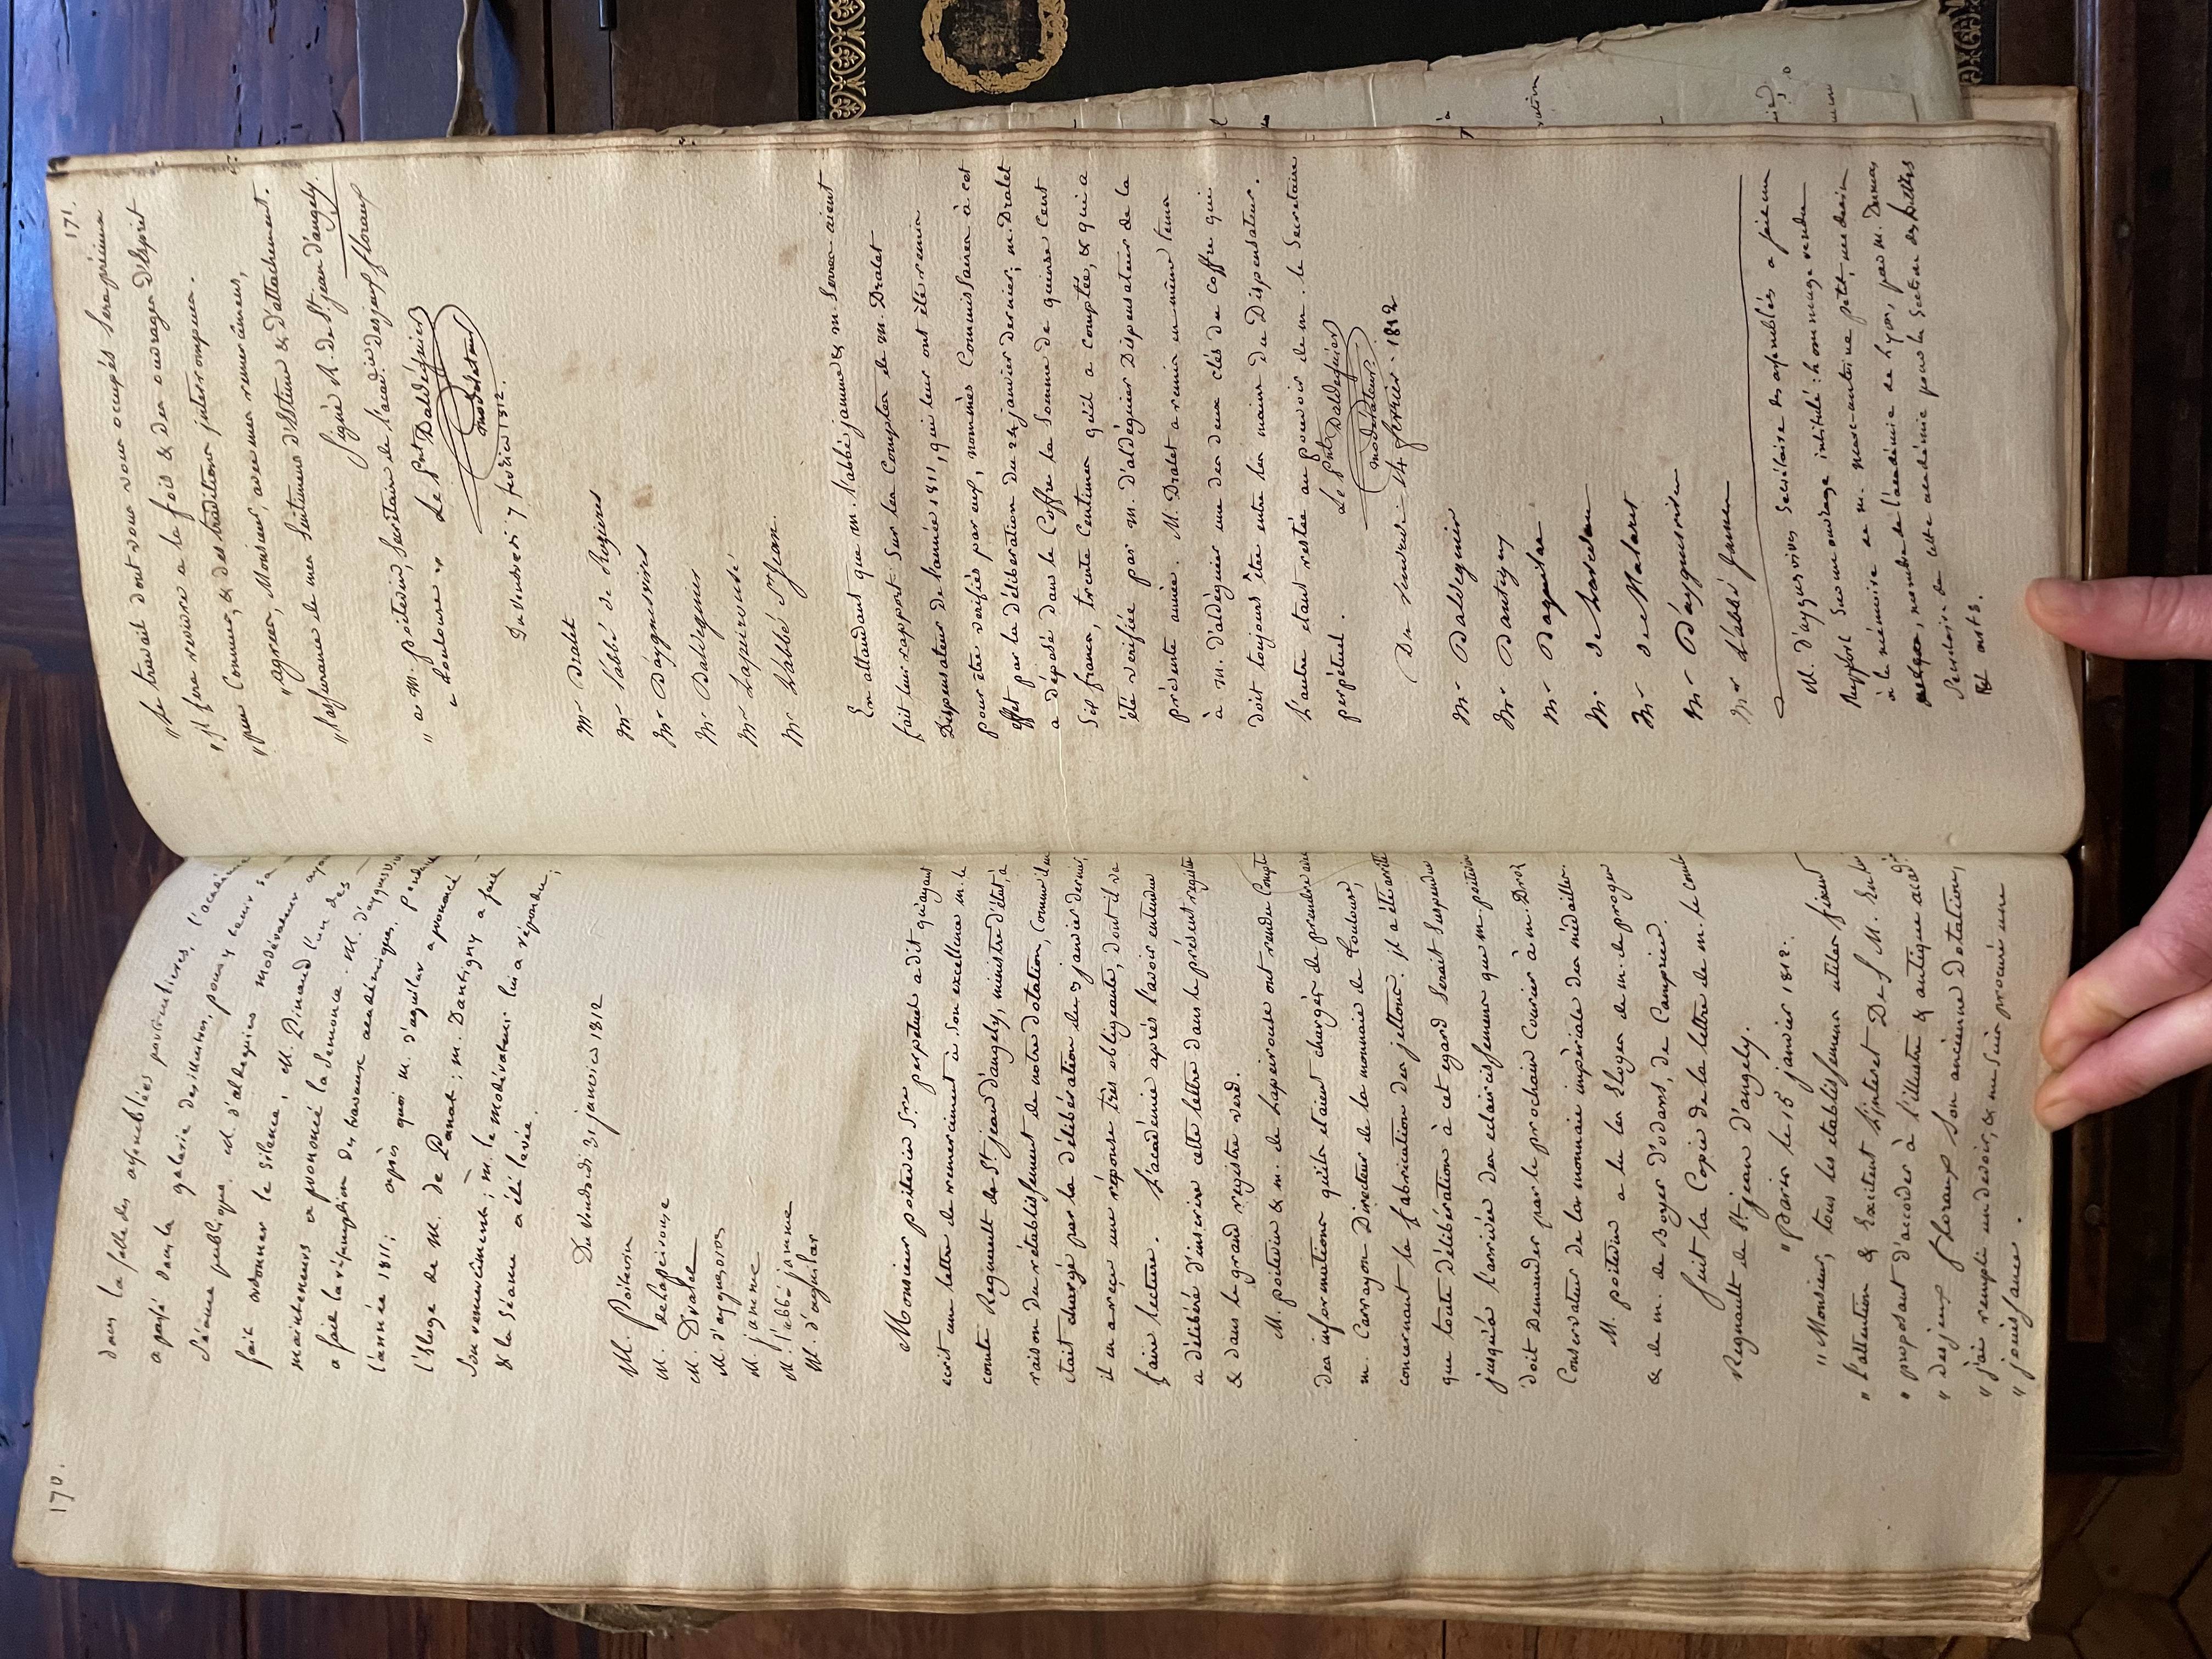 170.
dans la salle des assemblées particulières, l'académie
a passé dans la galerie des illustres, pour y tenir sa
séance publique. M. d'aldeguier modérateur ayant
fait ordonner le silence, M. Pinaud l'un des
mainteneurs a prononcé la semonce. M. d'ayguesvives
a fait la résumption des travaux académiques. pendant
l'année 1811; après quoi M. d'aguilar a prononcé
l'Eloge de M. de Panat; M. Dantigny a fait
son remerciement; M. le modérateur lui a répondu;
& la séance a été levée.
Du Vendredi 31 janvier 1812
M. Poitevin
M. delapeirouse
M. Dralet
M. d'ayguesvives
M. jamme
M. l'abbé jamme
M. d'aguilar
Monsieur poitevin Sre perpétuel a dit qu'ayant
ecrit une lettre de remerciement à son excellence m. le
comte Regnault de St. jean d'angely, ministre d'état, à
raison du rétablissement de notre dotation, comme il en
était chargé par la délibération du 3 janvier dernier,
il en a reçu une réponse très obligeante, dont il va
faire lecture. L'académie après l'avoir entendue
a délibéré d'inscrire cette lettre dans le présent registre
& dans le grand registre verd.
M. poitevin & m. de Lapeirouse ont rendu compte
des informations qu'ils etaient chargés de prendre avec
m. Carrayon Directeur de la monnaie de Toulouse,
concernant la fabrication des jettons. il a été arrêté
que toute délibération à cet egard serait suspendue
jusqu'à l'arrivée des eclaircissemens que m. poitevin
doit demander par le prochain Courier à m. Droz
Conservateur de la monnaie impériale des médailles.
M. poitevin a lu les Eloges de m. de progen
& de m. de Boyer d'odars, de Camprieu.
suit la Copie de la lettre de m. le comte
Regnault de St. jean d'angely.
"paris le 15 janvier 1812.
" Monsieur, tous les etablissemens utiles fixent
" l'attention & Excitent l'interet De S. M. En lui
" proposant d'accorder à l'illustre & antique académie
" des jeux floraux son ancienne dotation,
" j'ai rempli un devoir, & me suis procuré une
" jouissance.
171.
"Le travail dont vous vous occupés sera précieux
"il fera revivre a la fois & des ouvrages d'Esprit
"peu Connus, & des traditions interrompues.
"agréez, Monsieur, avec mes remercîmens,
"l'assurance de mes sentimens d'Estime & d'attachement.
signé R. de St. jean d'angely.
" a M. poitevin, Secrétaire de l'acad. des jeux floraux
" a toulouse "
Le Pnt Daldéguier
modérateur
Du Vendredi 7 fevrier 1812.
Mr Dralet
Mr l'abbé de Rozieres
Mr Dayguesvives
Mr Daldeguier
Mr Lapeirouse
Mr l'abbé St jean.
En attendant que m. l'abbé jamme & m. Serres aient
fait leur rapport sur les Comptes de M. Dralet
Dispensateur de l'année 1811, qui leur ont été remis
pour être verifiés par eux, nommés Commissaires à cet
effet par la délibération du 24 janvier dernier; m. Dralet
a déposé dans le Coffre la Somme de quinze Cent
six francs, trente Centimes qu'il a comptée, & qui a
été verifiée par M. d'aldéguier Dispensateur de la
présente année. M. Dralet a remis en même tems
à M. d'aldéguier une des deux clés de coffre qui
doit toujours être entre les mains du Dispensateur.
L'autre etant restée au pouvoir de m. le Secrétaire
perpétuel.
Le Pnt Daldeguier
modérateur.
Du vendredi 14 fevrier 1812
Mr Daldeguier
Mr Dantigny
Mr Daguilar
Mr de
Mr de Malaret
Mr Dayguesvives
Mr L'abbé Jamme
M. d'ayguesvives Secrétaire des assemblées a fait un
Rapport sur un ouvrage intitulé: hommage rendu
à la mémoire de M. marc-antoine petit, medecin
membre de l'académie de Lyon, par M. Dumas
Secrétaire de cette académie pour la Section des Lettres
Et arts.